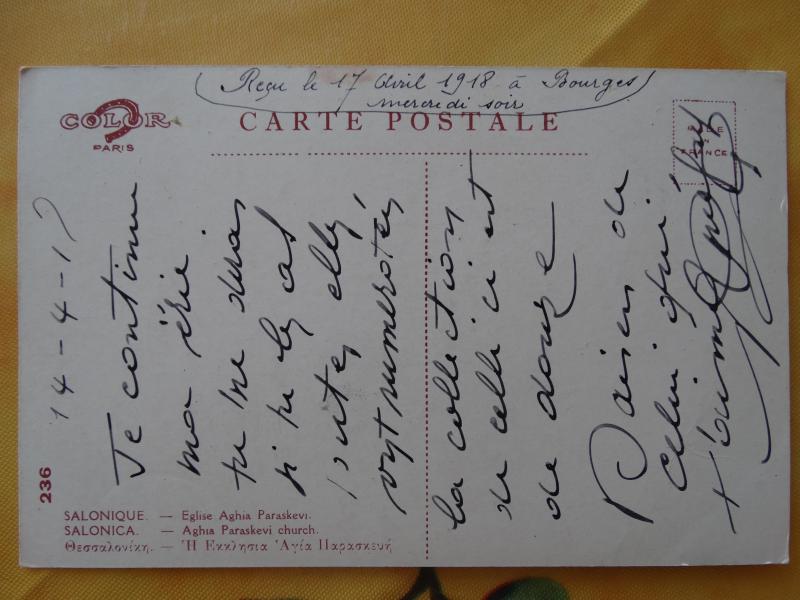 Reçu le 17 Avril 1918 à Bourges
mercredi soir
COLOR
PARIS
CARTE POSTALE
MADE
FRANCE
14-4-1
Je continue
ma série.
tu me diras
si tu les as
toutes elles
numérotées
la collection
de celle ci est
de douze
Baisers de
celui qui
t'aime
236
SALONIQUE. — Eglise Aghia Paraskevi.
SALONICA. — Aghia Paraskevi church.
Θεσσαλονίκη. — Ἡ Εκκλησια Ἁγία Παρασκευή